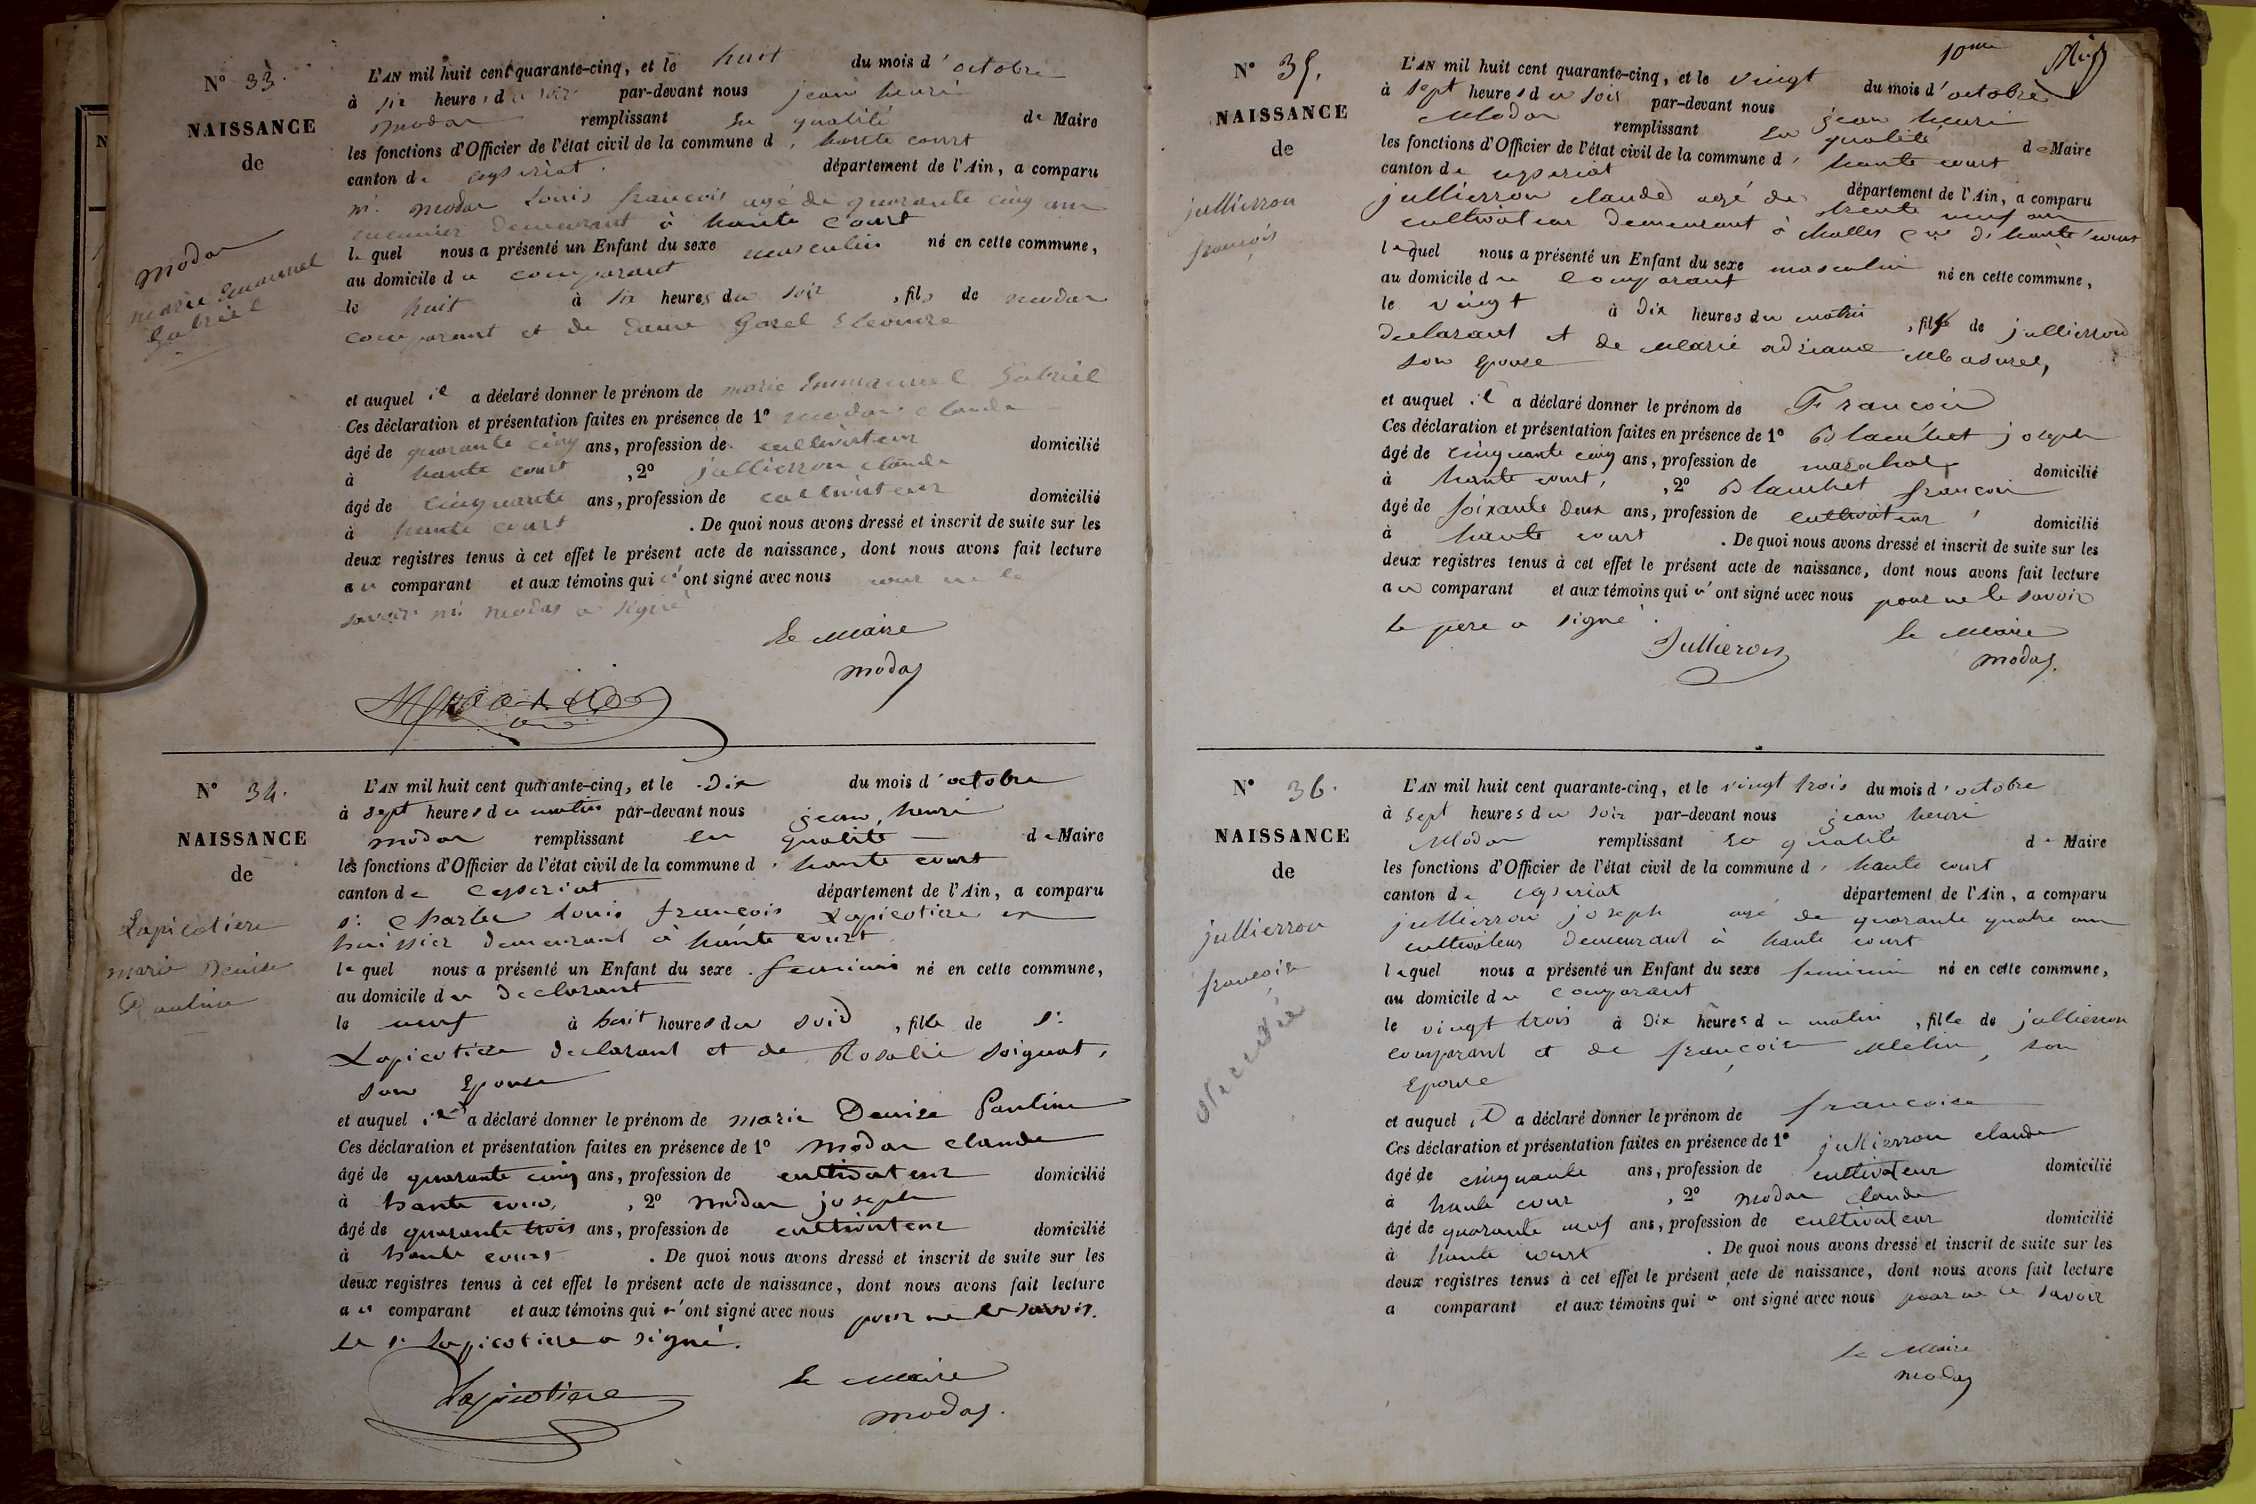 N° 33.
NAISSANCE
de
modas
marie Emmanuel
Gabriel
L'AN mil huit cent quarante-cinq, et le huit du mois d'octobre
à six heures du soir par-devant nous jean henri
modas remplissant en qualité de Maire
les fonctions d'Officier de l'état civil de la commune d' haute court
canton de ceyseriat département de l'Ain, a comparu
mr. modas Louis françois agé de quarante cinq ans
demeurant à haute court
lequel nous a présenté un Enfant du sexe masculin né en cette commune,
au domicile du comparant
le huit à six heures du soir, fils de modas
comparant et de dame
et auquel il a déclaré donner le prénom de marie Emmanuel Gabriel
Ces déclaration et présentation faites en présence de 1° modas claude
âgé de quarante cinq ans, profession de cultivateur domicilié
à haute court, 2° jullierron claude
âgé de cinquante ans, profession de cultivateur domicilié
à haute court. De quoi nous avons dressé et inscrit de suite sur les
deux registres tenus à cet effet le présent acte de naissance, dont nous avons fait lecture
au comparant et aux témoins qui n'ont signé avec nous pour ne le
savoir mr modas a signé
Le Maire
modas
N° 34.
NAISSANCE
de
Lapicotiere
marie Denise
Pauline
L'AN mil huit cent quarante-cinq, et le Dix du mois d'octobre
à sept heures du matin par-devant nous jean henri
modas remplissant en qualité de Maire
les fonctions d'Officier de l'état civil de la commune d' haute court
canton de Ceyseriat département de l'Ain, a comparu
sr Charles Louis françois Lapicotiere ex
huissier demeurant à haute court
lequel nous a présenté un Enfant du sexe feminin né en cette commune,
au domicile du declarant
le neuf à huit heures du soir, fille de sr
Lapicotiere declarant et de Rosalie soignat,
son Epouse
et auquel il a déclaré donner le prénom de marie Denise Pauline
Ces déclaration et présentation faites en présence de 1° modas claude
âgé de quarante cinq ans, profession de cultivateur domicilié
à haute cour, 2° modas joseph
âgé de quarante trois ans, profession de cultivateur domicilié
à haute court. De quoi nous avons dressé et inscrit de suite sur les
deux registres tenus à cet effet le présent acte de naissance, dont nous avons fait lecture
au comparant et aux témoins qui n'ont signé avec nous pour ne le savoir.
le sr Lapicotiere a signé.
Lapicotiere
Le Maire
modas.
10me
N° 35.
NAISSANCE
de
jullierron
françois
L'AN mil huit cent quarante-cinq, et le vingt du mois d'octobre
à sept heures du soir par-devant nous jean henri
Modas remplissant en qualité de Maire
les fonctions d'Officier de l'état civil de la commune d' haute court
canton de ceyseriat département de l'Ain, a comparu
jullierron claude agé de trente neuf ans
cultivateur demeurant à challes cne d' haute court
lequel nous a présenté un Enfant du sexe masculin né en cette commune,
au domicile du Comparant
le vingt à dix heures du matin, fils de jullierron
declarant et de Marie adriane Masurel,
son epouse
et auquel il a déclaré donner le prénom de François
Ces déclaration et présentation faites en présence de 1° Blanchet joseph
âgé de cinquante cinq ans, profession de marechal domicilié
à haute court, 2° Blanchet françois
âgé de soixante deux ans, profession de cultivateur domicilié
à haute court. De quoi nous avons dressé et inscrit de suite sur les
deux registres tenus à cet effet le présent acte de naissance, dont nous avons fait lecture
au comparant et aux témoins qui n'ont signé avec nous pour ne le savoir
le pere a signé.
Jullieron
le Maire
modas.
N° 36.
NAISSANCE
de
jullierron
françoise
L'AN mil huit cent quarante-cinq, et le vingt trois du mois d'octobre
à sept heures du soir par-devant nous jean henri
Modas remplissant en qualité de Maire
les fonctions d'Officier de l'état civil de la commune d' haute court
canton de ceyseriat département de l'Ain, a comparu
jullierron joseph agé de quarante quatre ans
cultivateur demeurant à haute court
lequel nous a présenté un Enfant du sexe feminin né en cette commune,
au domicile du comparant
le vingt trois à dix heures du matin, fille de jullierron
comparant et de françoise Melin, son
Epouse
et auquel il a déclaré donner le prénom de françoise
Ces déclaration et présentation faites en présence de 1° jullierron claude
âgé de cinquante ans, profession de cultivateur domicilié
à haute cour, 2° modas claude
âgé de quarante neuf ans, profession de cultivateur domicilié
à haute court. De quoi nous avons dressé et inscrit de suite sur les
deux registres tenus à cet effet le présent acte de naissance, dont nous avons fait lecture
a comparant et aux témoins qui n ont signé avec nous pour ne le savoir
le Maire
modas